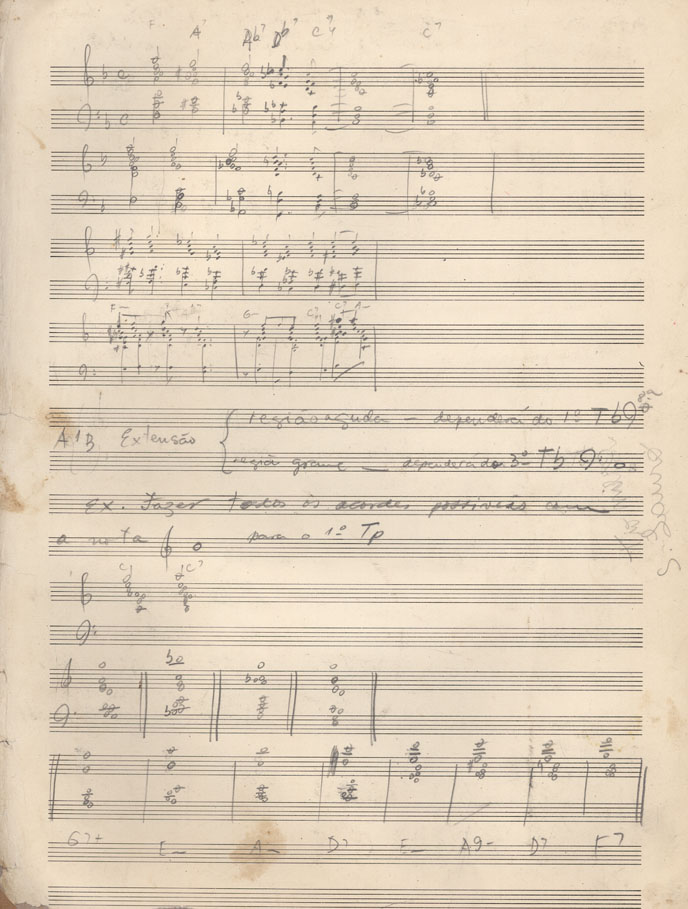 F A7 Ab7 Db7 C74 C7
F-
G-
A 1 B Extensão região aguda — dependerá do 1º Tb
região grave — dependerá do 3º Tb
Ex. Fazer todos os acordes possíveis com
a nota para o 1º Tp
C C7
G7+ E— A— D7 E— A9- D7 F7